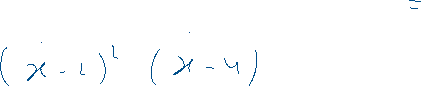 =
(x - 2)² (x - 4)